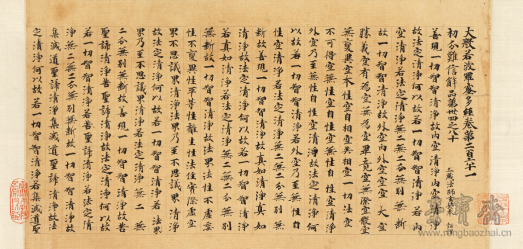 大般若波羅蜜多經卷第二百六十一
初分難信解品第卅四之八十 三藏法師玄奘奉 詔譯
善現一切智智清淨故內空清淨內空清淨
故法定清淨何以故若一切智智清淨若內
空清淨若法定清淨無二無二分無別無斷
故一切智智清淨故外空內外空空空大空
勝義空有為空無為空畢竟空無際空散空
無變異空本性空自相空共相空一切法空
不可得空無性空自性空無性自性空清淨
外空乃至無性自性空清淨故法定清淨何
以故若一切智智清淨若外空乃至無性自
性空清淨若法定清淨無二無二分無別無
斷故善現一切智智清淨故真如清淨真如
清淨故法定清淨何以故若一切智智清淨
若真如清淨若法定清淨無二無二分無別
無斷故一切智智清淨故法界法性不虛妄
性不變異性平等性離生性法住實際虛空
界不思議界清淨法界乃至不思議界清淨
故法定清淨何以故若一切智智清淨若法
界乃至不思議界清淨若法定清淨無二無
二分無別無斷故善現一切智智清淨故苦
聖諦清淨苦聖諦清淨故法定清淨何以故
若一切智智清淨若苦聖諦清淨若法定清
淨無二無二分無別無斷故一切智智清淨故
集滅道聖諦清淨集滅道聖諦清淨故法定
清淨何以故若一切智智清淨若集滅道聖
www.mingbaozhai.cn